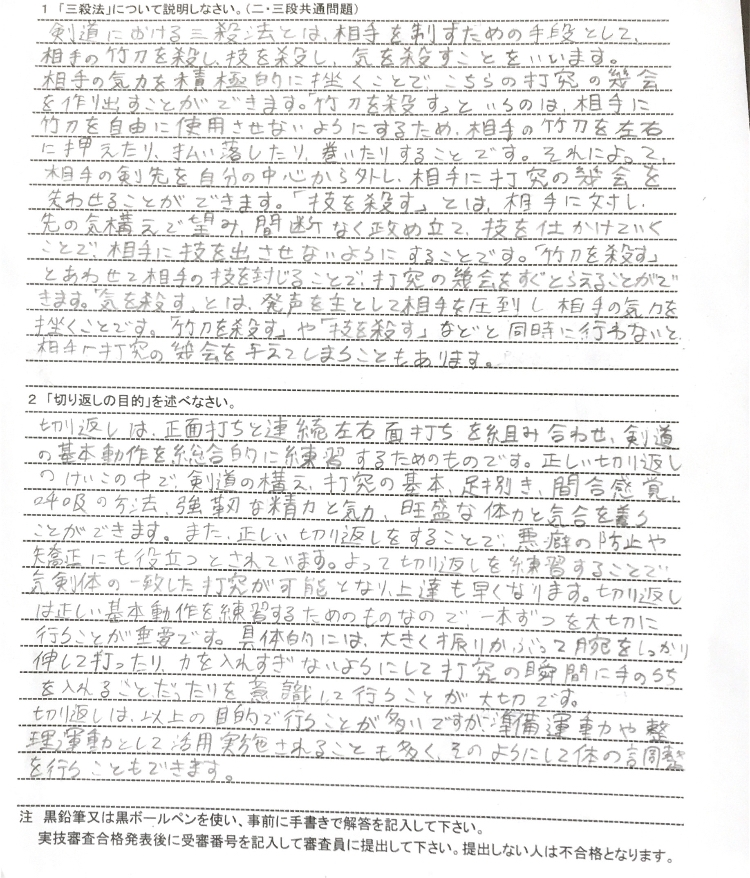 1 「三殺法」について説明しなさい。（二・三段共通問題）
剣道における三殺法とは、相手を制すための手段として、
相手の竹刀を殺し、技を殺し、気を殺すことをいいます。
相手の気力を積極的に挫くことで、こちらの打突の幾会
を作り出すことができます。「竹刀を殺す」というのは、相手に
竹刀を自由に使用させないようにするため、相手の竹刀を左右
に押えたり、払い落したり、巻いたりすることです。それによって、
相手の剣先を自分の中心から外し、相手に打突の幾会を
失わせることができます。「技を殺す」とは、相手に対し、
先の気構えで望み、間断なく攻め立て、技を仕かけていく
ことで、相手に技を出させないようにすることです。「竹刀を殺す」
とあわせて相手の技を封じることで、打突の幾会をすぐとらえることがで
きます。「気を殺す」とは、発声を主として相手を圧到し、相手の気力を
挫くことです。「竹刀を殺す」や「技を殺す」などと同時に行わないと、
相手に打突の幾会を与えてしまうこともあります。
2 「切り返しの目的」を述べなさい。
切り返しは、正面打ちと連続左右面打ちを組み合わせ、剣道
の基本動作を総合的に練習するためのものです。正しい切り返し
のけいこの中で、剣道の構え、打突の基本、足捌き、間合感覚、
呼吸の方法、強靭な精力と気力、旺盛な体力と気合を養う
ことができます。また、正しい切り返しをすることで、悪癖の防止や
矯正にも役立つとされています。よって切り返しを練習することで、
気剣体の一致した打突が可能となり、上達も早くなります。切り返し
は正しい基本動作を練習するためのものなので、一本ずつを大切に
行うことが重要です。具体的には、大きく振りかぶって腕をしっかり
伸して打ったり、力を入れすぎないようにして打突の瞬間に手のうち
を入れることだったりを意識して行うことが大切です。
切り返しは、以上の目的で行うことが多いですが、準備運動や整
理運動として活用実施されることも多く、そのようにして体の調整
を行うこともできます。
注 黒鉛筆又は黒ボールペンを使い、事前に手書きで解答を記入して下さい。
実技審査合格発表後に受審番号を記入して審査員に提出して下さい。提出しない人は不合格となります。